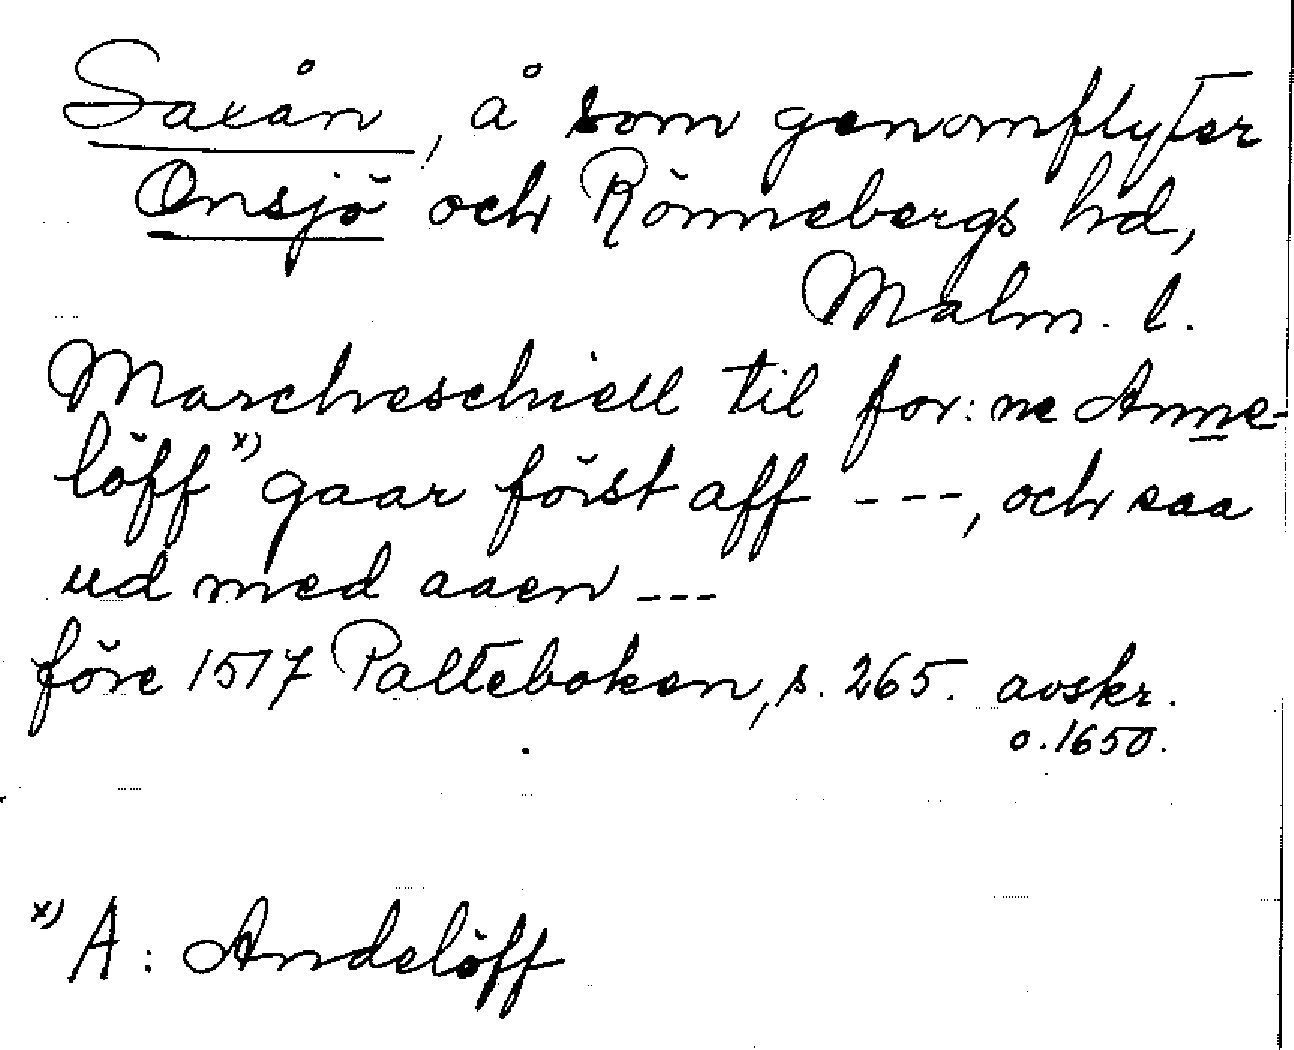 Saxån, å som genomflyter
Onsjö och Rönnebergs hd,
Malm. l.
Marcheschiell til for:ne Anne-
löff x) gaar först aff ---, och saa
ud med aaen ---
före 1517 Palteboken, s. 265. avskr.
o. 1650.
x) A: Andelöff